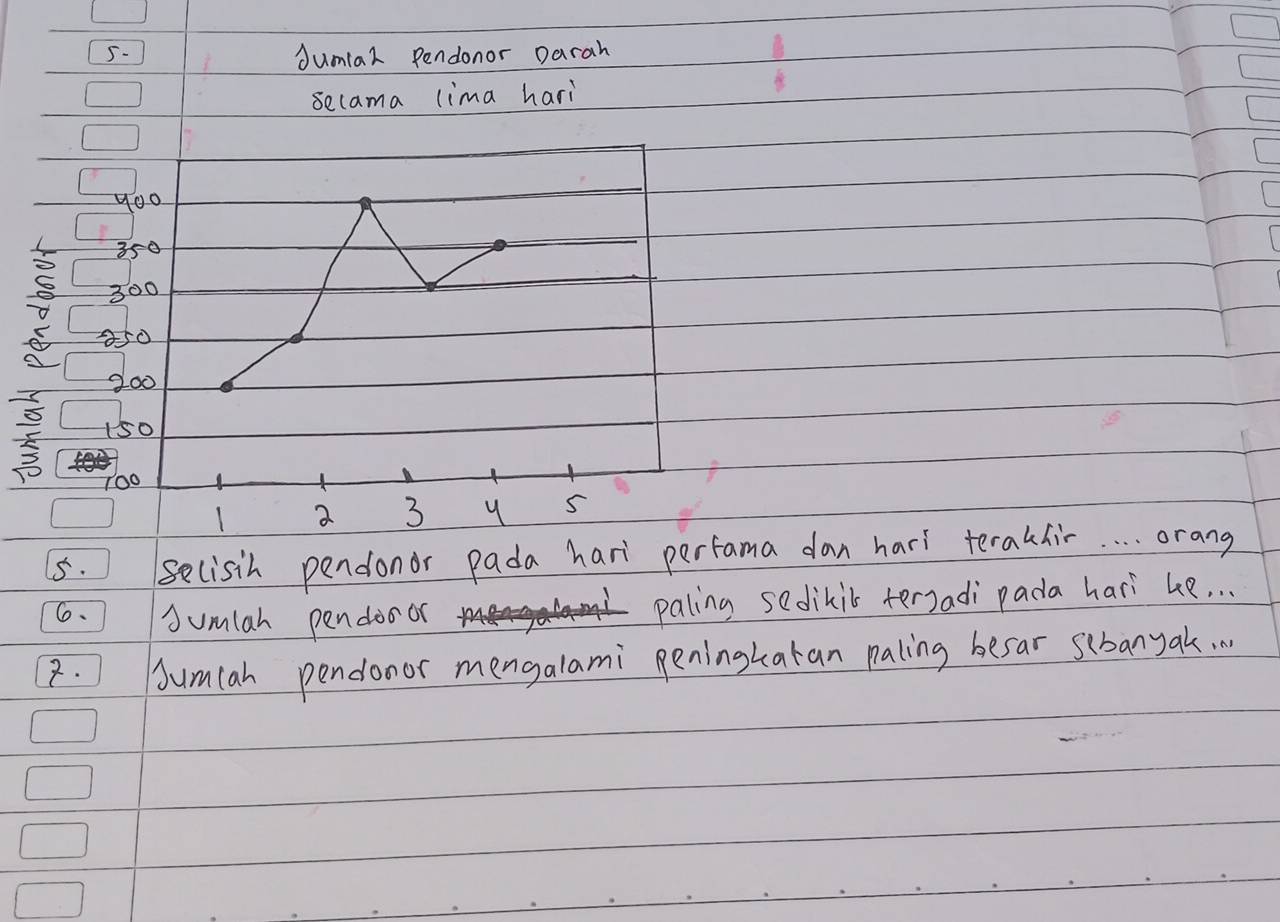 5. Jumlah Pendonor Darah
selama lima hari
400
350
300
250
200
150
100
Jumlah pendonor
1 2 3 4 5
5. Selisih pendonor pada hari pertama dan hari terakhir .... orang
6. Jumlah pendonor paling sedikit terjadi pada hari ke...
7. Jumlah pendonor mengalami peningkatan paling besar sebanyak...